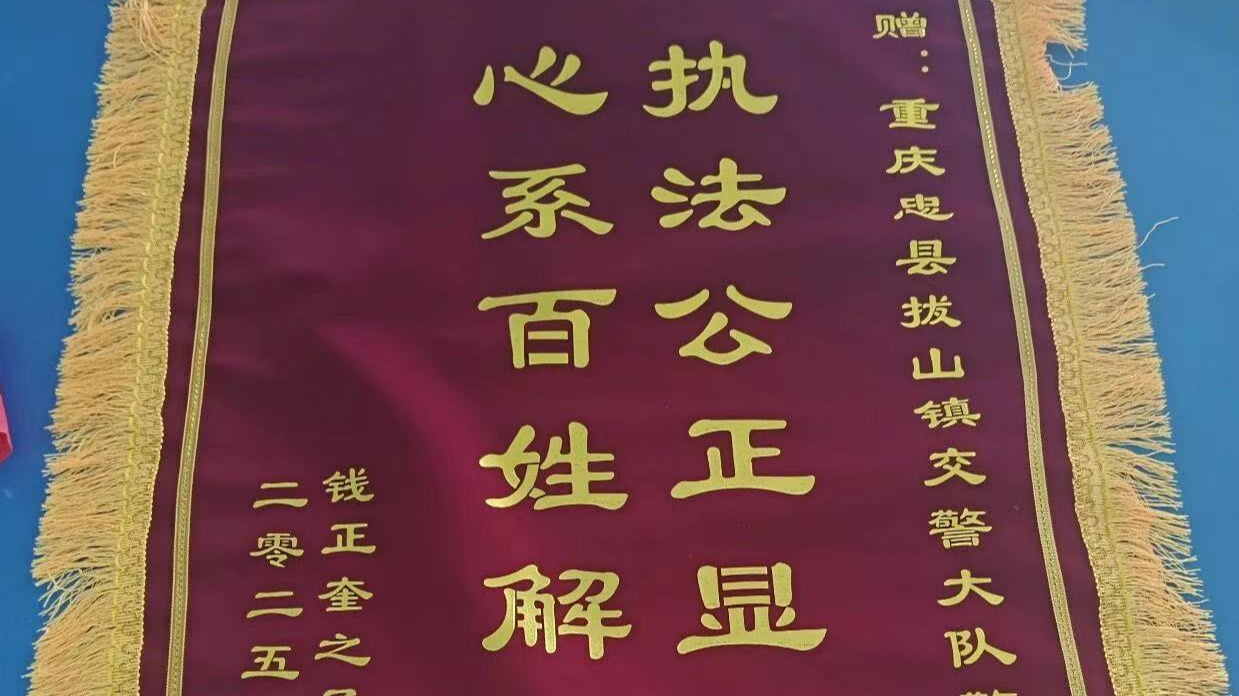 赠：重庆忠县拔山镇交警大队
执法公正显
心系百姓解
钱正奎之
二零二五